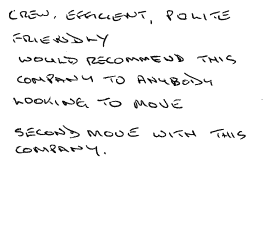 CREW. EFFICIENT, POLITE
FRIENDLY
WOULD RECOMMEND THIS
COMPANY TO ANYBODY
LOOKING TO MOVE
SECOND MOVE WITH THIS
COMPANY.